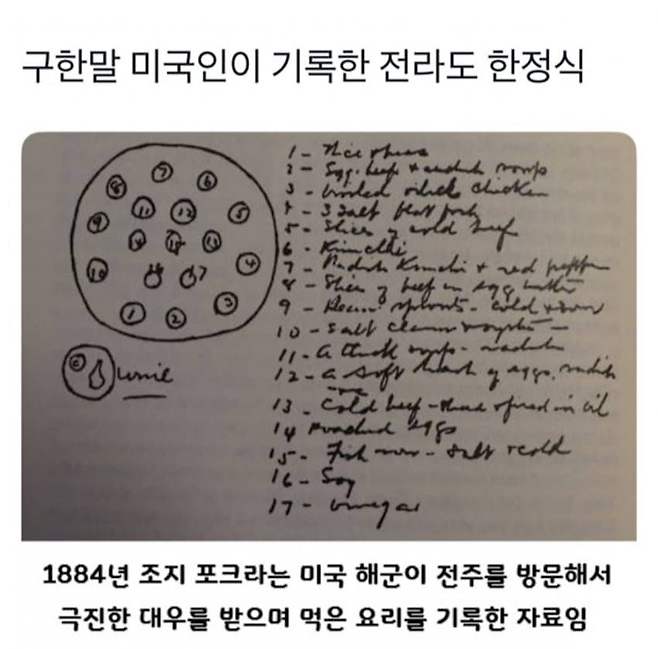 구한말 미국인이 기록한 전라도 한정식
7
8 6
11 12 5
9
14 15 13
10 4
16 17
3
1 2
wine
1 - Rice
2 - Egg, beef + radish soup
3 - chicken
4 - 3 salt
5 - Slices of cold beef
6 - Kimchi
7 - Radish Kimchi + red pepper
8 - Slices of beef in egg batter
9 - Bean sprouts - cold + sour
10 - Salt clams + oysters -
11 - A thick soup - radish
12 - A soft hash of eggs, radish
13 - Cold beef - fried in oil
14 Poached eggs
15 - Fish roe - salt + cold
16 - Soy
17 - Vinegar
1884년 조지 포크라는 미국 해군이 전주를 방문해서
극진한 대우를 받으며 먹은 요리를 기록한 자료임